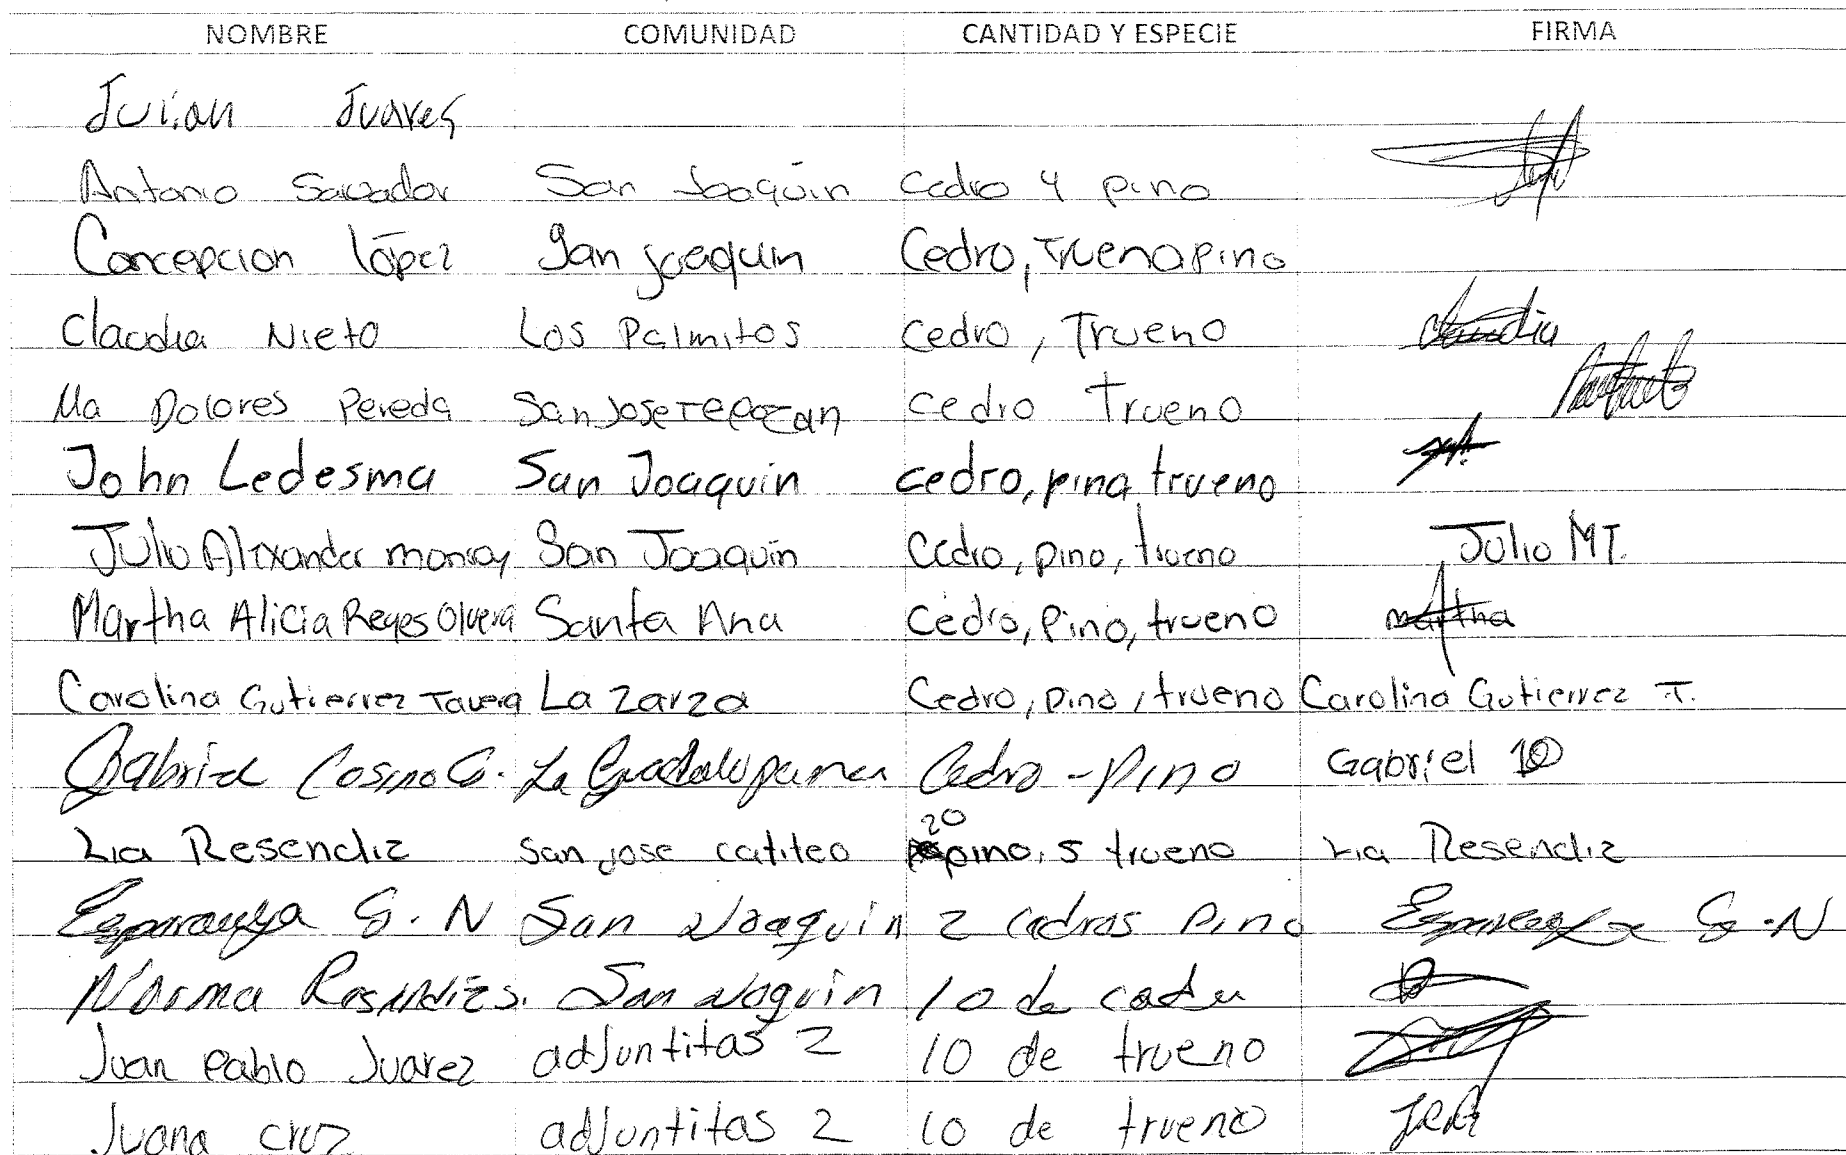 NOMBRE COMUNIDAD CANTIDAD Y ESPECIE FIRMA
Julian Juares
Antonio Savador San Joaquin Cedro y pino
Concepcion lópez San joaquin Cedro, Truenopino
Claudia Nieto Los Palmitos Cedro, Trueno Claudia
Ma Dolores Pereda San Jose Tepozan Cedro Trueno
John Ledesma San Joaquin cedro, pino trueno
Julio Alexander monroy San Joaquin Cedro, pino, trueno Julio MT.
Martha Alicia Reyes Olvera Santa Ana Cedro, Pino, trueno martha
Carolina Gutierrez Tavera La Zarza Cedro, pino, trueno Carolina Gutierrez T.
Gabriel Cosme G. La Guadalupana Cedro - Pino Gabriel
Lia Resendiz San jose catiteo 20 pino, 5 trueno Lia Resendiz
Esperanza G. N San Joaquin 2 Cedros Pino Esperanza G. N
Norma San Joaquin 10 de cada
Juan Pablo Juarez adjuntitas 2 10 de trueno
Juana cruz adjuntitas 2 10 de trueno